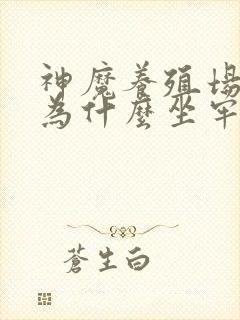 神魔養殖場
為什麼坐牢
蒼生白